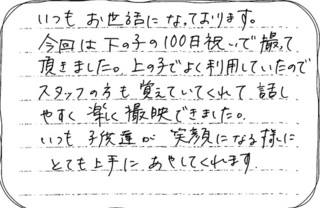 いつも お世話に なっております。
今回は 下の子の100日祝いで 撮って
頂きました。上の子でよく利用していたので
スタッフの方も 覚えていてくれて 話し
やすく 楽しく 撮映できました。
いつも 子供達が 笑顔になる様に
とても上手に あやしてくれます